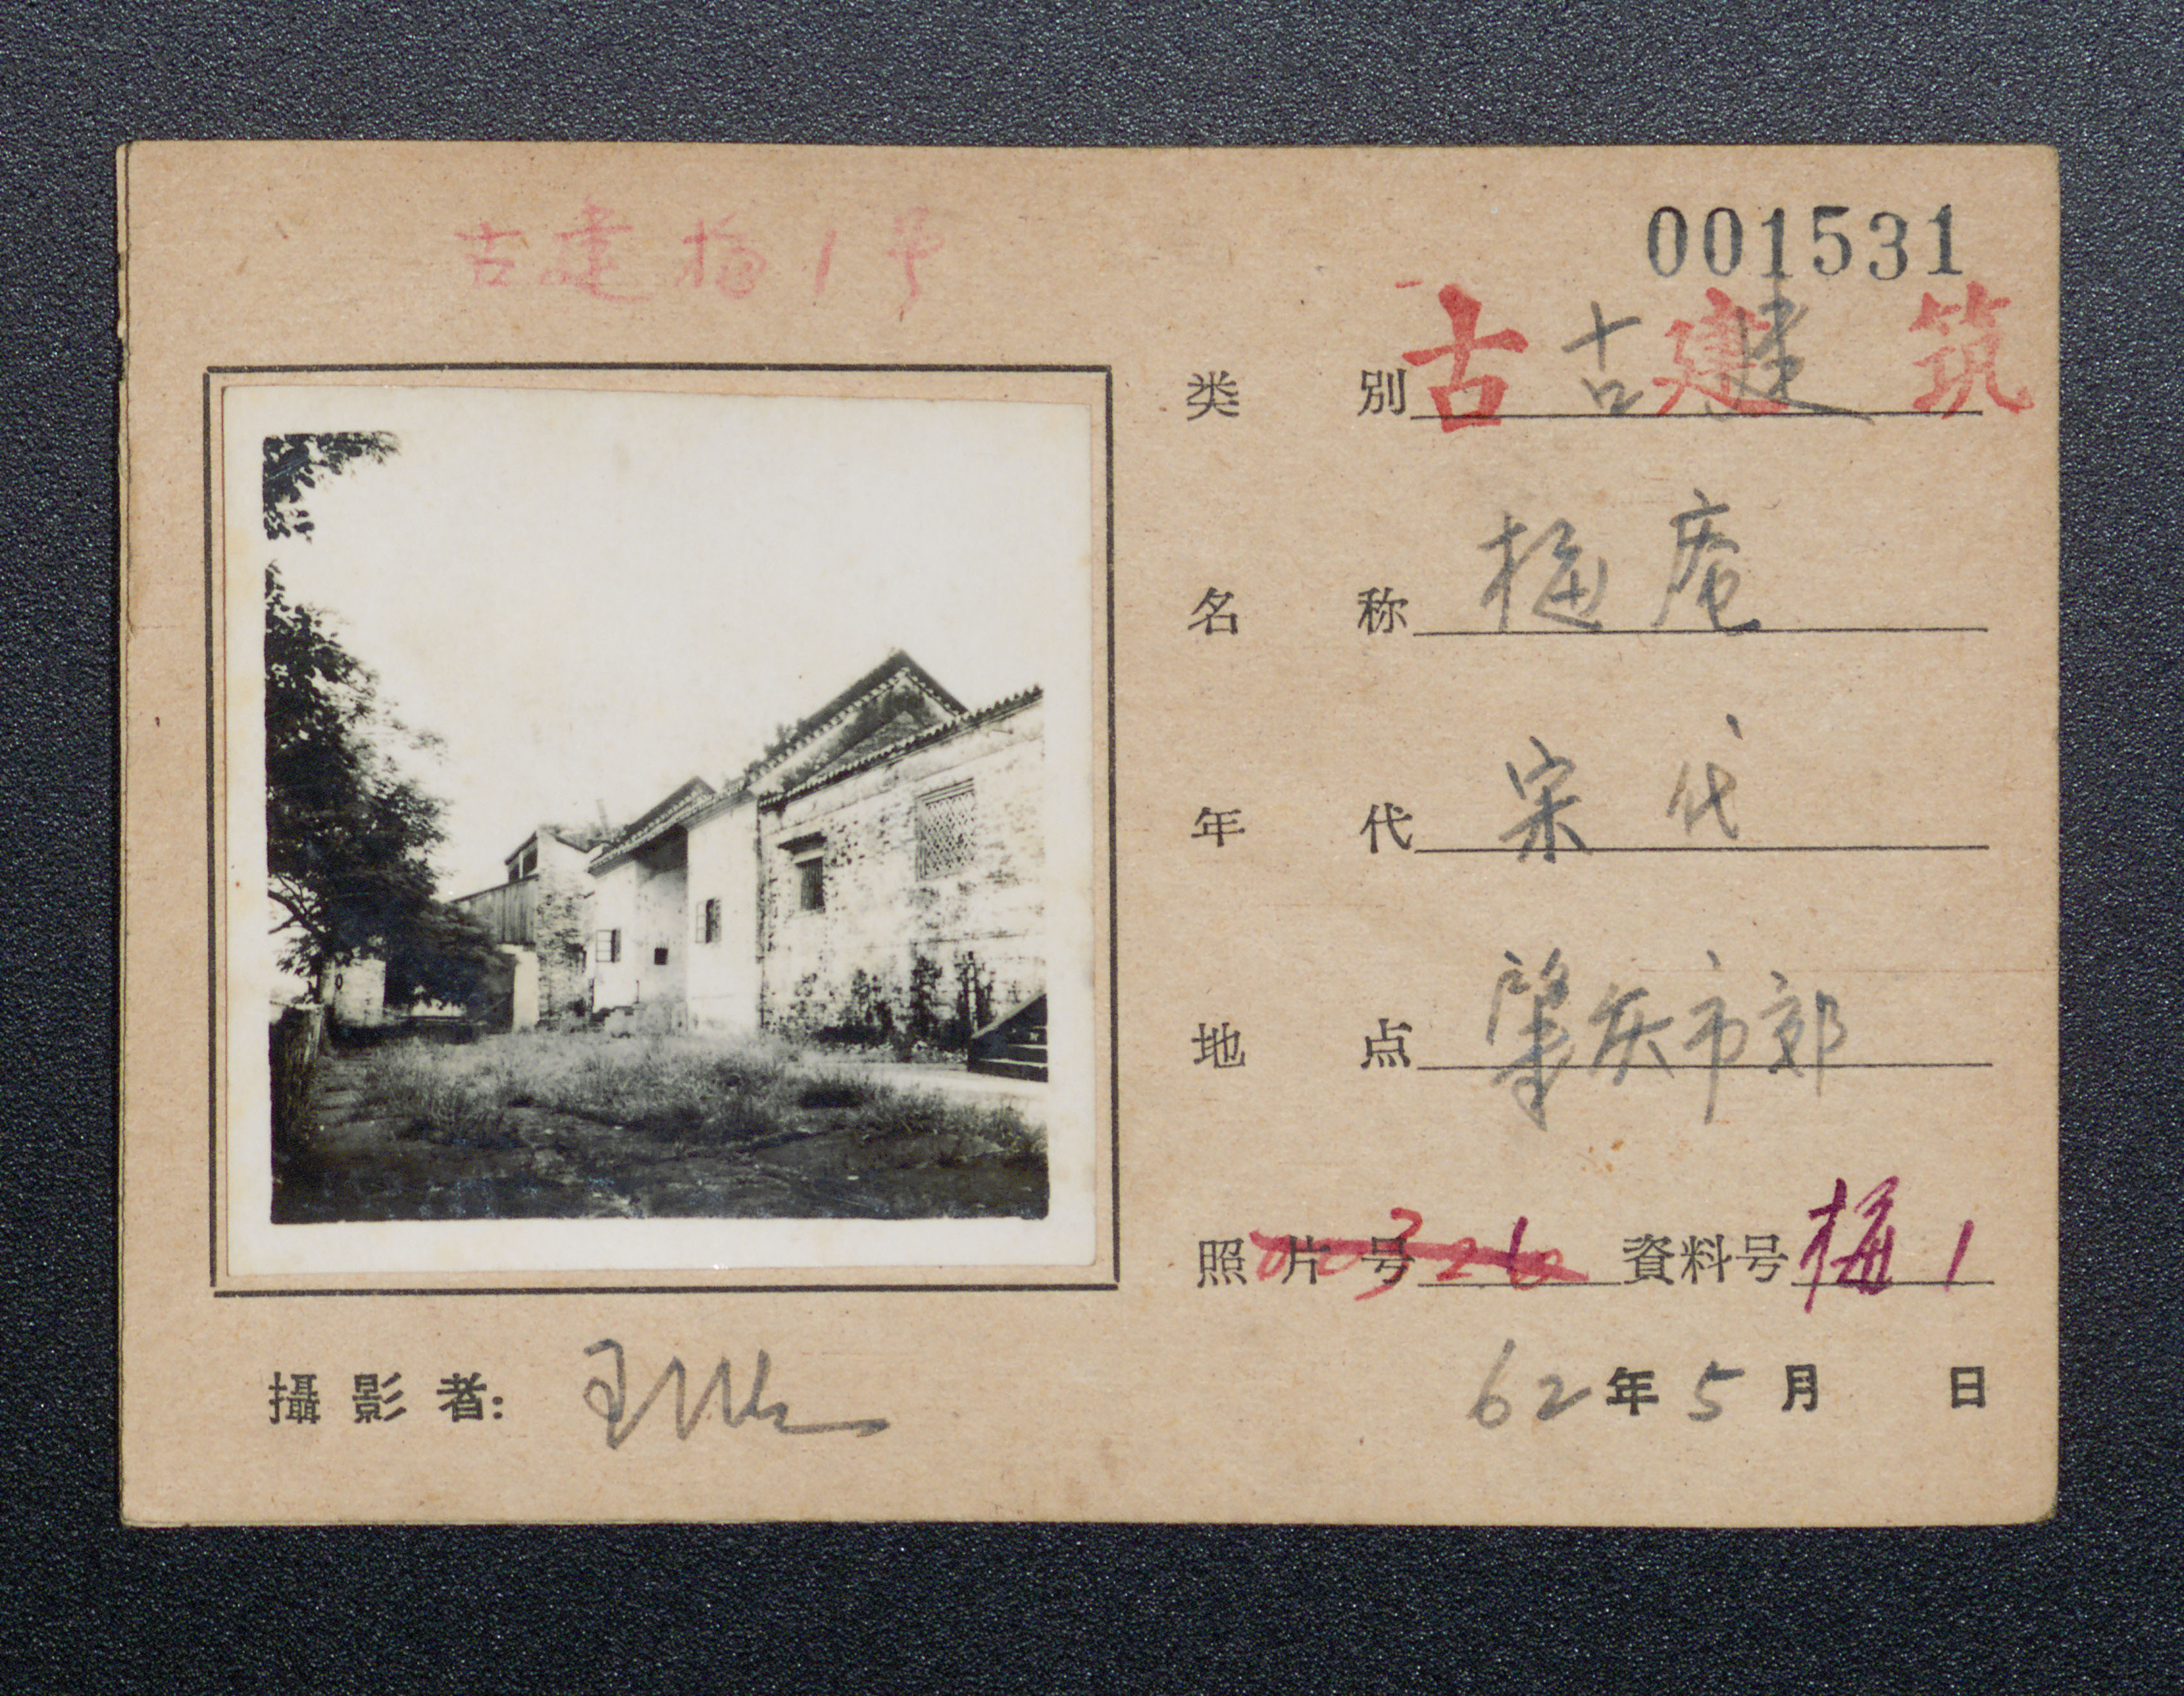 古建梅1号
001531
类别 古建筑 古建
名称 梅庵
年代 宋代
地点 肇庆市郊
照片号 資料号 梅1
攝影者:
62年5月 日